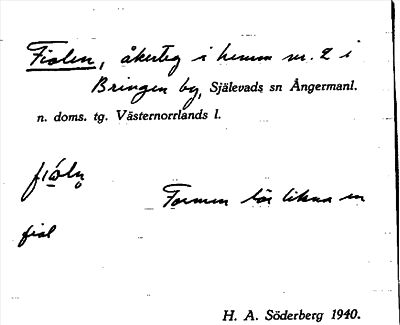 Fiolen, åkerteg i hemm nr. 2 i
Bringen by, Själevads sn Ångermanl.
n. doms. tg. Västernorrlands l.
fió̱ln̥
Formen lär likna en
fiol
H. A. Söderberg 1940.